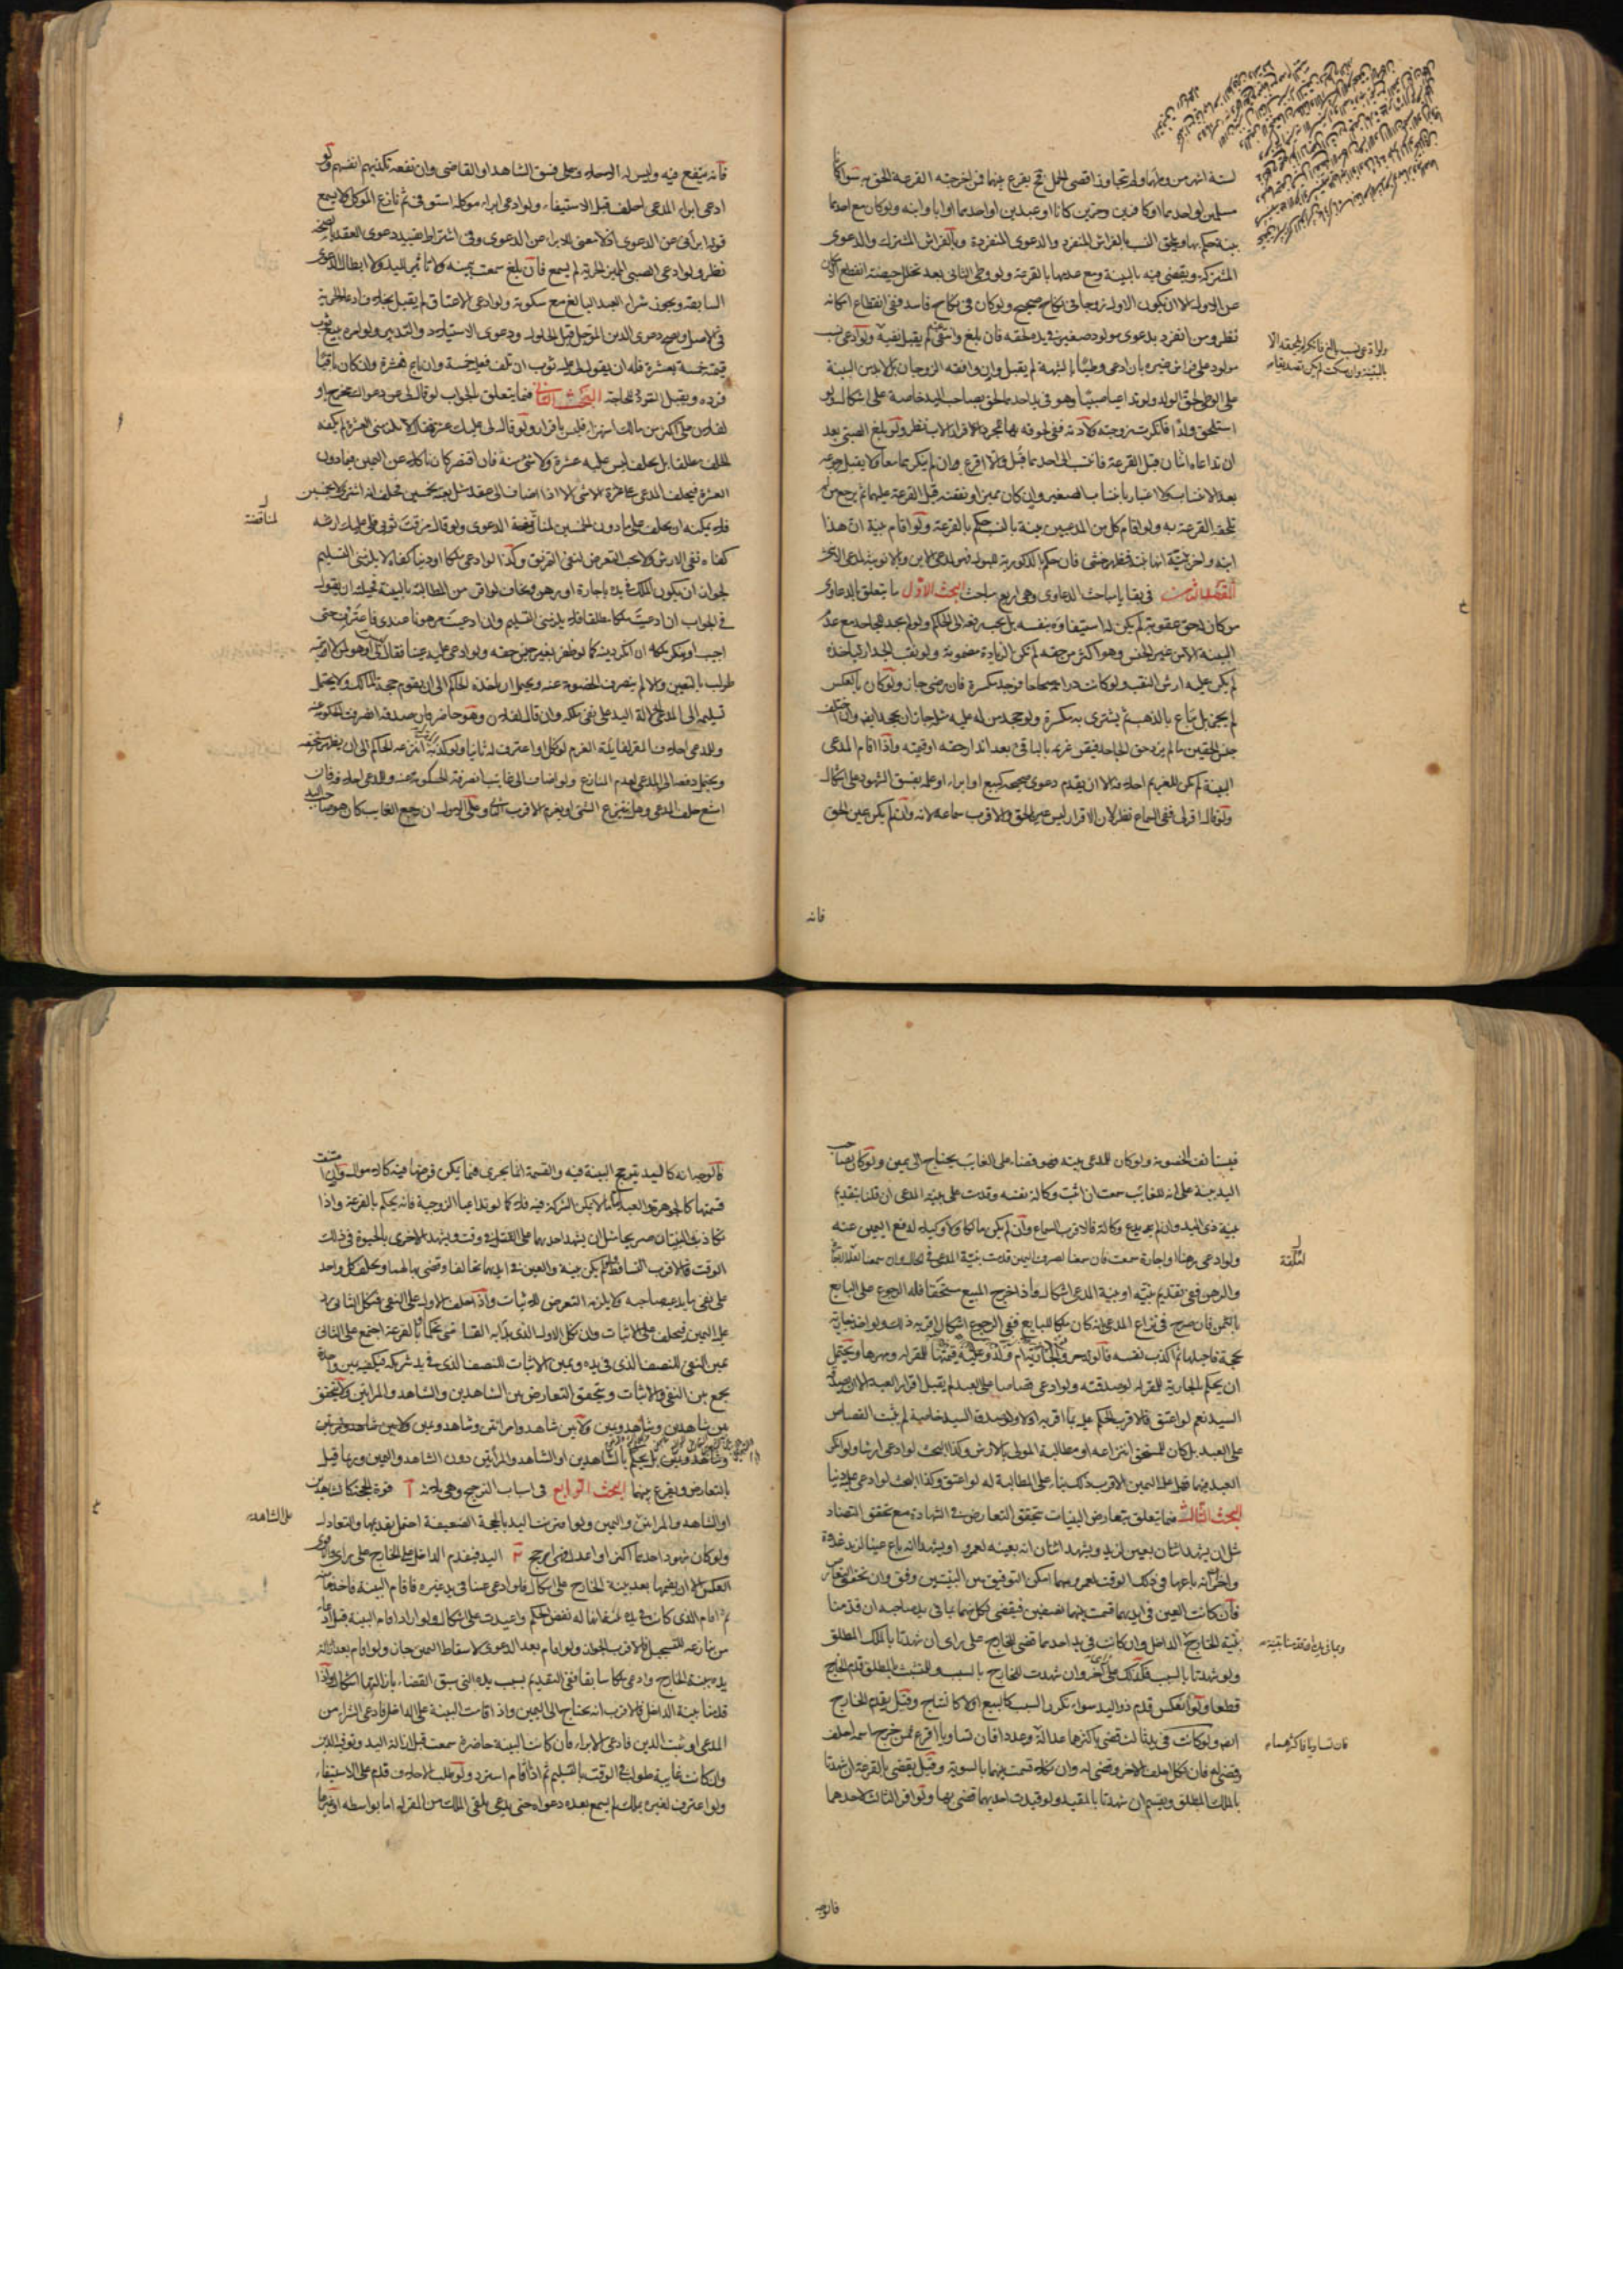 لستة اشهر من وطيهما ولم تتجاوز اقصى الحمل فح يقرع بينهما فمن اخرجته القرعة الحق به سواء كانا
مسلمين او احدهما او كافرين وحرين كانا او عبدين او احدهما او ابا وابنه ولو كان مع احدهما
بينة حكم بها ويلحق النسب بالفراش المنفرد والدعوى المنفردة وبالفراش المشترك والدعوى
المشتركة ويقضى فيه بالبينة ومع عدمها بالقرعة ولو وطى الثانى بعد تخلل حيضة انقطع الامكان
عن الاول الا ان يكون الاول زوجا فى نكاح صحيح ولو كان فى نكاح فاسد ففى انقطاع امكانه
نظر ومن انفرد بدعوى مولود صغير فى يده لحقه فان بلغ وانتفى عنه لم يقبل نفيه ولو ادعى نسب
مولود على فراش غيره بان ادعى وطيًا بالشبهة لم يقبل وان وافقه الزوجان بل لابد من البينة
على الوطى لحق الولد ولو تداعيا صبيًا وهو فى يد احدهما لحق بصاحب اليد خاصة على اشكال ولو
استلحق ولدًا فانكرت زوجته ولادته ففى لحوقه بها بمجرد الاقرار الاب نظر ولو بلغ الصبى بعد
ان تداعاه اثنان قبل القرعة فانتسب الى احدهما قُبل والا اقرع وان لم يكن معا ولا يقبل رجوعه
بعد الانتساب ولا اعتبار بانتساب الصغير وان كان مميزا ونفقته قبل القرعة عليهما ثم يرجع من لم
تلحقه القرعة به ولو اقام كل من المدعيين بينة بالنسب حكم بالقرعة ولو اقام بينة ان هذا
ابنه واخر بينة انها بنته فظهر خنثى فان حكم بالذكورية للبول فهو لمدعى الابن وبالانوثية لمدعى الاخر
المقصد الخامس فى بقايا مباحث الدعاوى وهى اربع مباحث البحث الاول ما يتعلق بالدعاوى
من كان له حق عقوبة لم يكن له استيفاؤه بنفسه بل يجب رفعه الى الحاكم ولو لم يجد للجاحد مع عدم
البينة الا من غير الجنس وهو اكثر من حقه لم تكن الزيادة مضمونة ولو نقب الجدار لياخذه
لم يكن عليه ارش النقب ولو كانت دراهمه صحاحا فوجد مكسرة فان رضى جاز ولو كان بالعكس
لم يجز بل يباع بالذهب ثم يشترى به مكسرة ولو جحد من له عليه مثله جاز ان يجحد ايضا وان اختلف
جنس الحقين ما لم يزد حق الجاحد فيقر غريمه بالباقى بعد اندار حقه او قيمته واذا اقام المدعى
البينة لم يكن للغريم احلافه الا ان يقدم دعوى صحيحة كبيع او ابراء او علمه بفسق الشهود على اشكال
ولو قال اقر لى ففى السماع نظر لان الاقرار ليس عين الحق والاقرب سماعه لانه وان لم يكن عين الحق
فانه
ولو ادعى نسب بالغ فانكر لم يلحقه الا
بالبينة وان سكت لم يكن تصديقا
فانه ينتفع فيه وليس له احلافه وعلى فسق الشاهد او القاضى وان نفعه تكذيبهم انفسهم ولو
ادعى ابراء المدعى احلف قبل الاستيفاء ولو ادعى ابراء موكله استوفى ثم نازع الموكل ولا يسمع
قوله ابرانى عن الدعوى اذ لا معنى للابراء عن الدعوى وفى اشتراط تقييد دعوى العقد بالصحة
نظر ولو ادعى الصبى المميز الحرية لم يسمع فان بلغ سمعت يمينه ولا تاثير لليد ولا ابطال الدعوى
السابقة ويجوز شراء العبد البالغ مع سكوته ولو ادعى الاعتاق لم يقبل بخلاف ادعاء الحرية
فى الاصل ويصح دعوى الدين المؤجل قبل الحلول ودعوى الاستيلاد والتدبير ولو امره ببيع ثوب
قيمته خمسة بعشرة فله ان يقول لى عليه ثوب ان تلف فعليه خمسة وان باع فعشرة وان كان باقيًا
فرده ويقبل التردد للحاجة البحث الثانى فيما يتعلق بالجواب لو قال لى عن دعواك مخرج او
لفلان على اكثر من مالك استهزاء فليس باقرار ولو قال لى عليك عشرة فقال لا يلزمنى العشرة لم يكفه
الحلف مطلقا بل يحلف ليس عليه عشرة ولا شىء منه فان اقتصر كان ناكلا عن اليمين فيما دون
العشرة فيحلف المدعى على عشرة الا شىء الا اذا اضاف الى عقد مثل بعته بخمسين فحلف انه اشترى لا بخمسين
فلا يمكنه ان يحلف على ما دون الخمسين لمناقضة الدعوى ولو قال مزقت ثوبى فلى عليك ارشه
كفاه نفى الارش ولا يجب التعرض لنفى التمزيق وكذا لو ادعى ملكا او دينا كفاه لا يلزمنى التسليم
لجواز ان يكون الملك فى يده باجارة او رهن ويخاف لو اقر من المطالبة بالبينة فحيلته ان يقول
فى الجواب ان ادعيت ملكا مطلقا فلا يلزمنى التسليم وان ادعيت مرهونا عندى فاعترف به حتى
اجيب او ينكر ملكه ان انكر دينه كما لو ظفر بغير جنس حقه ولو ادعى عليه عينا فقال ليس لى او هو لمن لا اسميه
طولب بالتعيين والا لم ينصرف الخصومة عنه ويحتمل ان ياخذه الحاكم الى ان يقوم حجة لمالك ولا يحتمل
تسليمه الى المدعى لدلالة اليد على نفى ملكه وان قال لفلان وهو حاضر فان صدقه انصرفت الحكومة عنه
وللمدعى احلاف المقر لفايدة الغرم لو نكل او اعترف له ثانيا ولو كذبه انتزعه الحاكم الى ان يظهر مستحقه
ويحتمل دفعه الى المدعى لعدم المنازع ولو اضاف الى غايب انصرفت الحكومة عنه وللمدعى احلافه فان
امتنع حلف المدعى وهل ينتزع الشىء او يغرم الاقرب الثانى وعلى الاول ان رجع الغايب كان هو صاحب اليد
لمناقضة
فيستانف الخصومة ولو كان للمدعى بينة فهو قضاء على الغايب يحتاج الى يمين ولو كان لصاحب
اليد بينة على انه للغايب سمعت ان اثبت وكالة نفسه وقدمت على بينة المدعى ان قلنا بتقديم
بينة ذى اليد وان لم يدع وكالة فالاقرب السماع وان لم يكن مالكا ولا وكيلا لدفع اليمين عنه
ولو ادعى رهنا او اجارة سمعت فان سمعنا لصرف اليمين قدمت بينة المدعى فى الحال وان سمعنا لعلقة
والرهن ففى تقديم بينته او بينة المدعى اشكال واذا خرج المبيع مستحقا فله الرجوع على البايع
بالثمن فان صرح فى نزاع المدعى بانه كان ملكا للبايع ففى الرجوع اشكال
بحجة فاحبلها ثم اكذب نفسه فالولد حر والجارية ام ولد وعليه قيمتها للمقر له ومهرها ويحتمل
ان يحكم بالجارية للمقر له لو صدقته ولو ادعى قصاصا على العبد لم يقبل اقرار العبد الا ان يصدقه
السيد نعم لو اعتق فالاقرب الحكم عليه بما اقر به اولا ولو صدقه السيد خاصة لم يثبت القصاص
على العبد بل كان للمستحق انتزاعه او مطالبة المولى بالارش وكذا البحث لو ادعى ارشا ولو انكر
العبد فيهما فهل عليه اليمين الاقرب ذلك بناء على المطالبة له لو اعتق وكذا البحث لو ادعى عليه دينا
البحث الثالث فيما يتعلق بتعارض البينات يتحقق التعارض فى الشهادة مع تحقق التضاد
مثل ان يشهد اثنان بعين لزيد ويشهد اثنان انه بعينه لعمرو او يشهدا انه باع عينا لزيد غدوة
واخران انه باعها فى ذلك الوقت لعمرو ومهما امكن التوفيق بين البينتين وفق وان تحقق التعارض
فان كانت العين فى ايديهما قسمت بينهما نصفين فيقضى لكل منهما بما فى يد صاحبه ان قدمنا
بينة الخارج الداخل وان كانت فى يد احدهما قضى للخارج على راى ان شهدتا بالملك المطلق
ولو شهدتا بالسبب فكذلك على راى وان شهدت للخارج بالسبب وللمتشبث بالمطلق قدم الخارج
قطعا ولو انعكس قدم ذو اليد سواء تكرر السبب كالبيع او لا كالنتاج وقيل يقدم الخارج
ايضا ولو كانت فى يد ثالث قضى باكثرهما عدالة وعددا فان تساويا اقرع فمن خرج اسمه احلف
وقضى له فان نكل احلف الاخر وقضى له وان نكلا قسمت بينهما بالسوية وقيل يقضى بالقرعة ان شهدتا
بالملك المطلق ويقسم ان شهدتا بالمقيد ولو قيدت احديهما قضى بها ولو اقر الثالث لاحدهما
فالوجه
لعلقة
فان تساويا فاكثرهما
فالوجه انه كاليد يترجح البينة فيه والقسمة انما يجرى فيما يمكن فرضها فيه كالاموال وان امتنعت
قسمتها كالجوهرة والعبد اما ما لا يمكن الشركة فيه فلا كما لو تداعيا الزوجية فانه يحكم بالقرعة واذا
تكاذبت البينتان صريحا مثل ان يشهد احدهما على القتل فى وقت ويشهد الاخرى بالحيوة فى ذلك
الوقت فالاقرب التساقط ولو لم يكن بينة والعين فى ايديهما تحالفا وقضى بها لهما ويحلف كل واحد
على نفى ما يدعيه صاحبه ولا يلزمه التعرض للاثبات واذا احلف الاول على النفى فنكل الثانى رد
عليه اليمين فيحلف على الاثبات وان نكل الاول الذى بدا به القاضى تحكما او بالقرعة اجتمع على الثانى
يمين النفى للنصف الذى فى يده ويمين الاثبات للنصف الذى فى يد شريكه فيكفيه يمين واحدة
يجمع بين النفى والاثبات ويتحقق التعارض بين الشاهدين والشاهد والمراتين ولا يتحقق
بين شاهدين وشاهد ويمين ولا بين شاهد وامراتين وشاهد ويمين ولا بين شاهد وامراتين
وشاهد ويمين بل يحكم بالشاهدين او الشاهد والمراتين دون الشاهد واليمين وربما قيل
بالتعارض ويقرع بينهما البحث الرابع فى اسباب الترجيح وهى ثلاثة آ قوة الحجة كالشاهدين
او الشاهد والمراتين واليمين ولو اقترنت اليد بالحجة الضعيفة احتمل تقديمها والتعادل
ولو كان شهود احدهما اكثر او اعدل فهى ارجح ب اليد فيقدم الداخل على الخارج على راى والاقوى
العكس الا ان يقيمها بعد بينة الخارج على اشكال فلو ادعى عينا فى يد غيره فاقام البينة فاخذها منه
ثم اقام الذى كانت فى يده انها له نقض الحكم واعيدت على اشكال ولو اراد اقامة البينة قبل ادعاء
من ينازعه للتسجيل فالاقرب الجواز ولو اقام بعد الدعوى لاسقاط اليمين جاز ولو اقام بعد ازالة
يده ببينة الخارج وادعى ملكا سابقا ففى التقديم بسبب يده التى سبق القضاء بازالتها اشكال واذا
قدمنا بينة الداخل فالاقرب انه يحتاج الى اليمين واذا قامت البينة على الداخل فادعى الشراء من
المدعى او ثبت الدين فادعى الابراء فان كانت البينة حاضرة سمعت قبل ازالة اليد وتوفية الدين
وان كانت غايبة طولب فى الوقت بالتسليم ثم اذا اقام استرد ولو طلب الاحلاف قدم على الاستيفاء
ولو اعترف لغيره بملك لم يسمع بعده دعواه حتى يدعى تلقى الملك من المقر له اما بواسطة او غيرها
على الشاهد